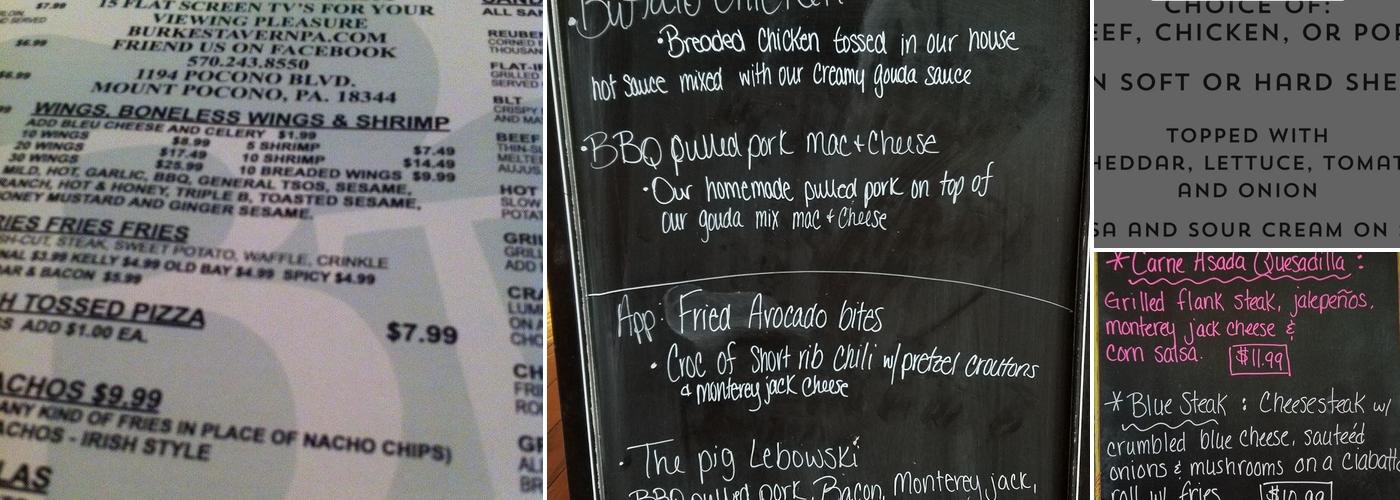 $7.99
15 FLAT SCREEN TV'S FOR YOUR
VIEWING PLEASURE
BURKESTAVERNPA.COM
FRIEND US ON FACEBOOK
570.243.8550
1194 POCONO BLVD.
MOUNT POCONO, PA. 18344
$6.99
$6.99
WINGS, BONELESS WINGS & SHRIMP
ADD BLEU CHEESE AND CELERY $1.99
10 WINGS $8.99 5 SHRIMP $7.49
20 WINGS $17.49 10 SHRIMP $14.49
30 WINGS $25.99 10 BREADED WINGS $9.99
MILD, HOT, GARLIC, BBQ, GENERAL TSOS, SESAME,
RANCH, HOT & HONEY, TRIPLE B, TOASTED SESAME,
ONEY MUSTARD AND GINGER SESAME.
RIES FRIES FRIES
SH-CUT, STEAK, SWEET POTATO, WAFFLE, CRINKLE
NAL $3.99 KELLY $4.99 OLD BAY $4.99 SPICY $4.99
AR & BACON $5.99
H TOSSED PIZZA
$7.99
ADD $1.00 EA.
ACHOS $9.99
ANY KIND OF FRIES IN PLACE OF NACHO CHIPS)
ACHOS - IRISH STYLE
LAS
REUBEN
FLAT-IR
GRILLED
BLT
CRISPY
AND MA
BEEF
THIN-SL
MELTED
AUJUS
HOT
SLOW
POTAT
GRIL
ADD
CRA
LUM
ON A
CHO
CH
FRI
RO
GR
AL
BR
•Buffalo Chicken
•Breaded Chicken tossed in our house
hot sauce mixed with our creamy gouda sauce
•BBQ pulled pork mac+Cheese
•Our homemade pulled pork on top of
our gouda mix mac + Cheese
App: Fried Avocado bites
• Croc of Short rib Chili w/ pretzel croutons
& monterey jack cheese
• The pig Lebowski
BBQ pulled pork, Bacon, Monterey jack,
CHOICE OF:
EEF, CHICKEN, OR POR
N SOFT OR HARD SHE
TOPPED WITH
HEDDAR, LETTUCE, TOMAT
AND ONION
SA AND SOUR CREAM ON S
*Carne Asada Quesadilla :
Grilled flank steak, jalepeños,
monterey jack cheese &
corn salsa. $11.99
*Blue Steak : Cheesesteak w/
crumbled blue cheese, sauteéd
onions & mushrooms on a ciabatta
roll w/ fries